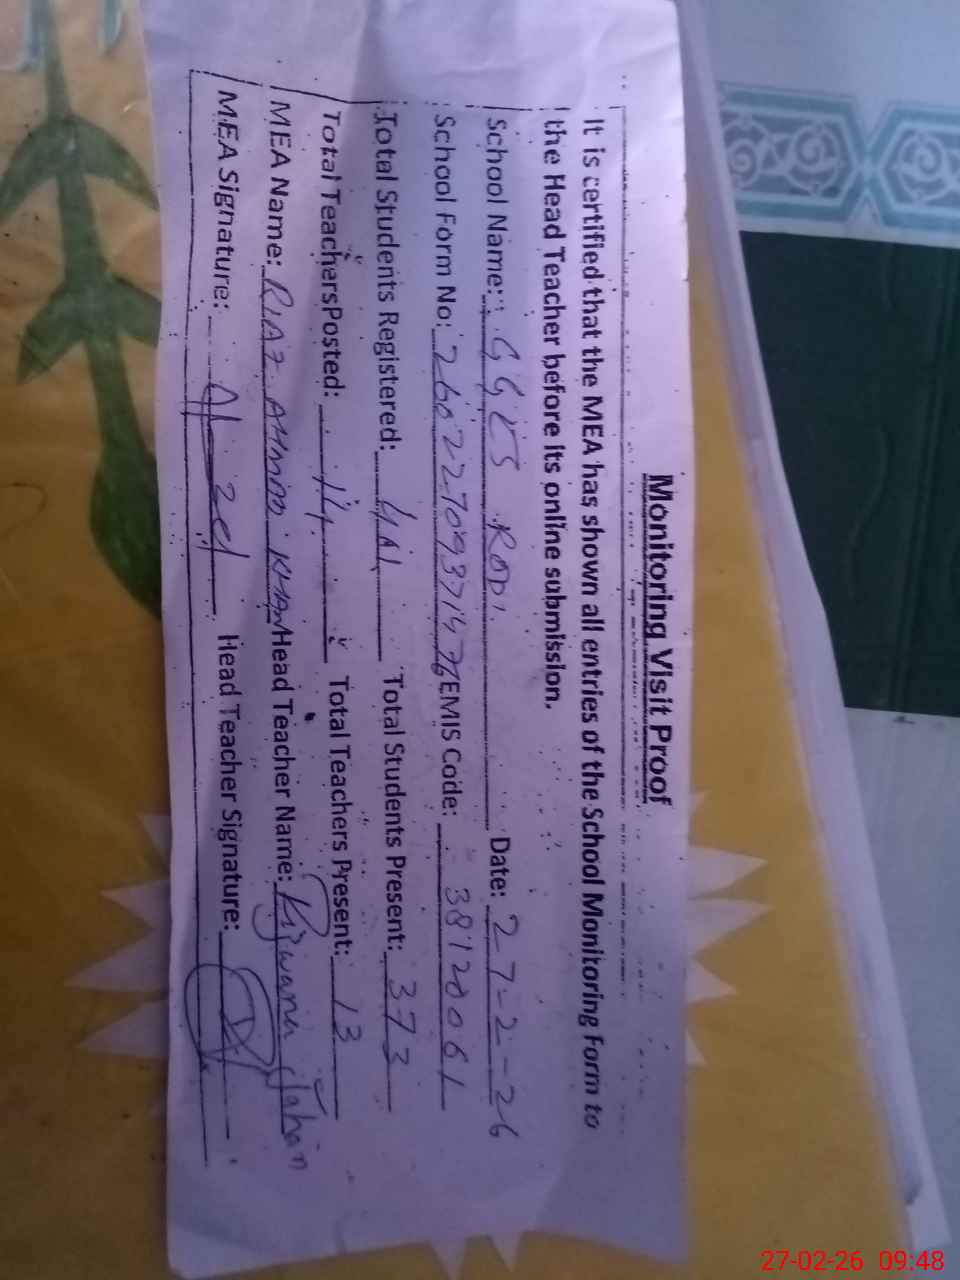 Monitoring Visit Proof
It is certified that the MEA has shown all entries of the School Monitoring Form to
the Head Teacher before its online submission.
School Name: GGES RODI Date: 27-2-26
School Form No: EMIS Code: 38120061
Total Students Registered: 441 Total Students Present: 373
Total Teachers Posted: 14 Total Teachers Present: 13
MEA Name: RIAZ AHMAD KHAN Head Teacher Name: Rizwana Jahan
MEA Signature: Head Teacher Signature:
27-02-26 09:48